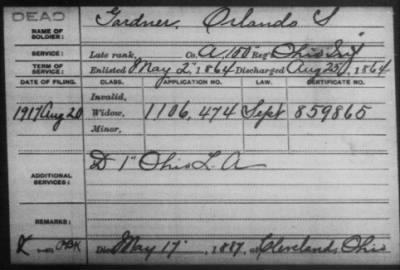 DEAD
Gardner, Orlando S
NAME OF SOLDIER:
SERVICE: Late rank, Co. A, 150 Reg't Ohio Inf
TERM OF SERVICE: Enlisted May 2, 1864 Discharged Aug 23, 1864
DATE OF FILING. CLASS. APPLICATION NO. LAW. CERTIFICATE NO.
Invalid,
1917 Aug 20 Widow, 1106,474 Sept 859865
Minor,
D 1" Ohio L. A
ADDITIONAL SERVICES:
REMARKS:
Died May 17, 1887, at Cleveland, Ohio